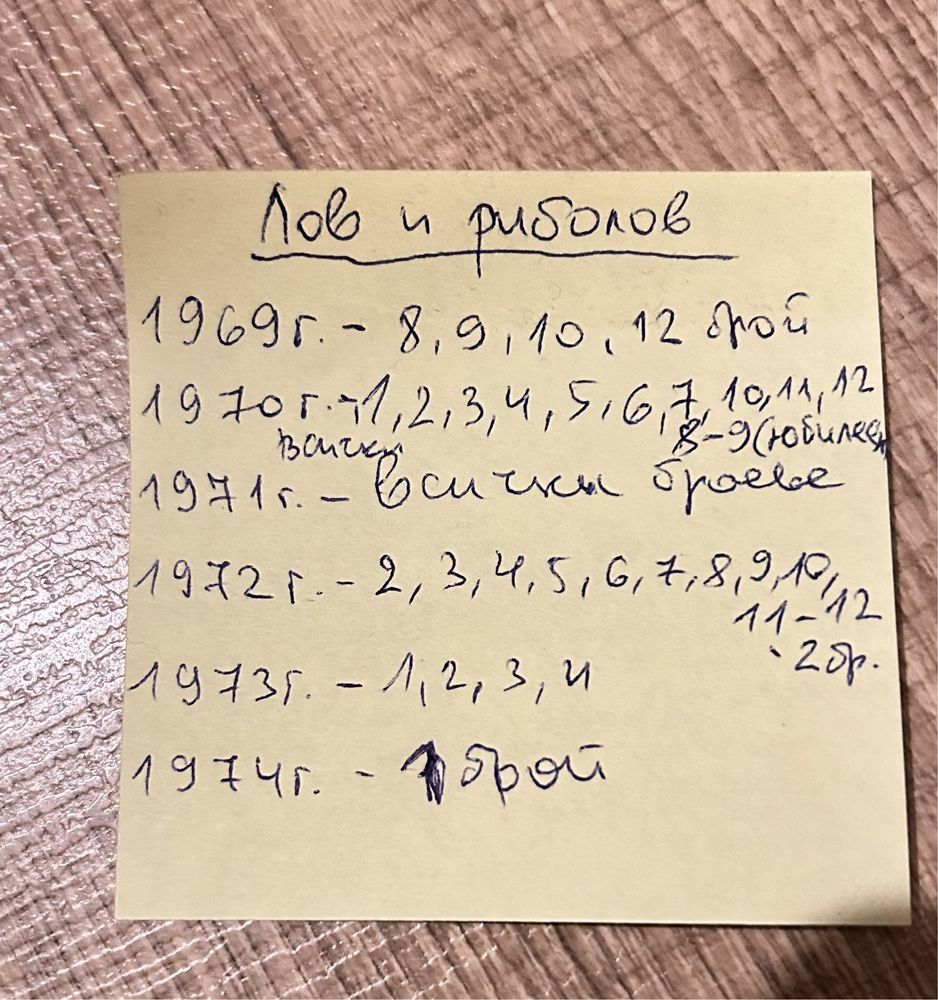 Лов и риболов
1969г. - 8, 9, 10, 12 брой
1970г. - 1, 2, 3, 4, 5, 6, 7, 10, 11, 12
всички 8-9 (юбилеен
1971г. - всички броеве
1972г. - 2, 3, 4, 5, 6, 7, 8, 9, 10,
11-12
2 бр.
1973г. - 1, 2, 3, 4
1974г. - 1 брой